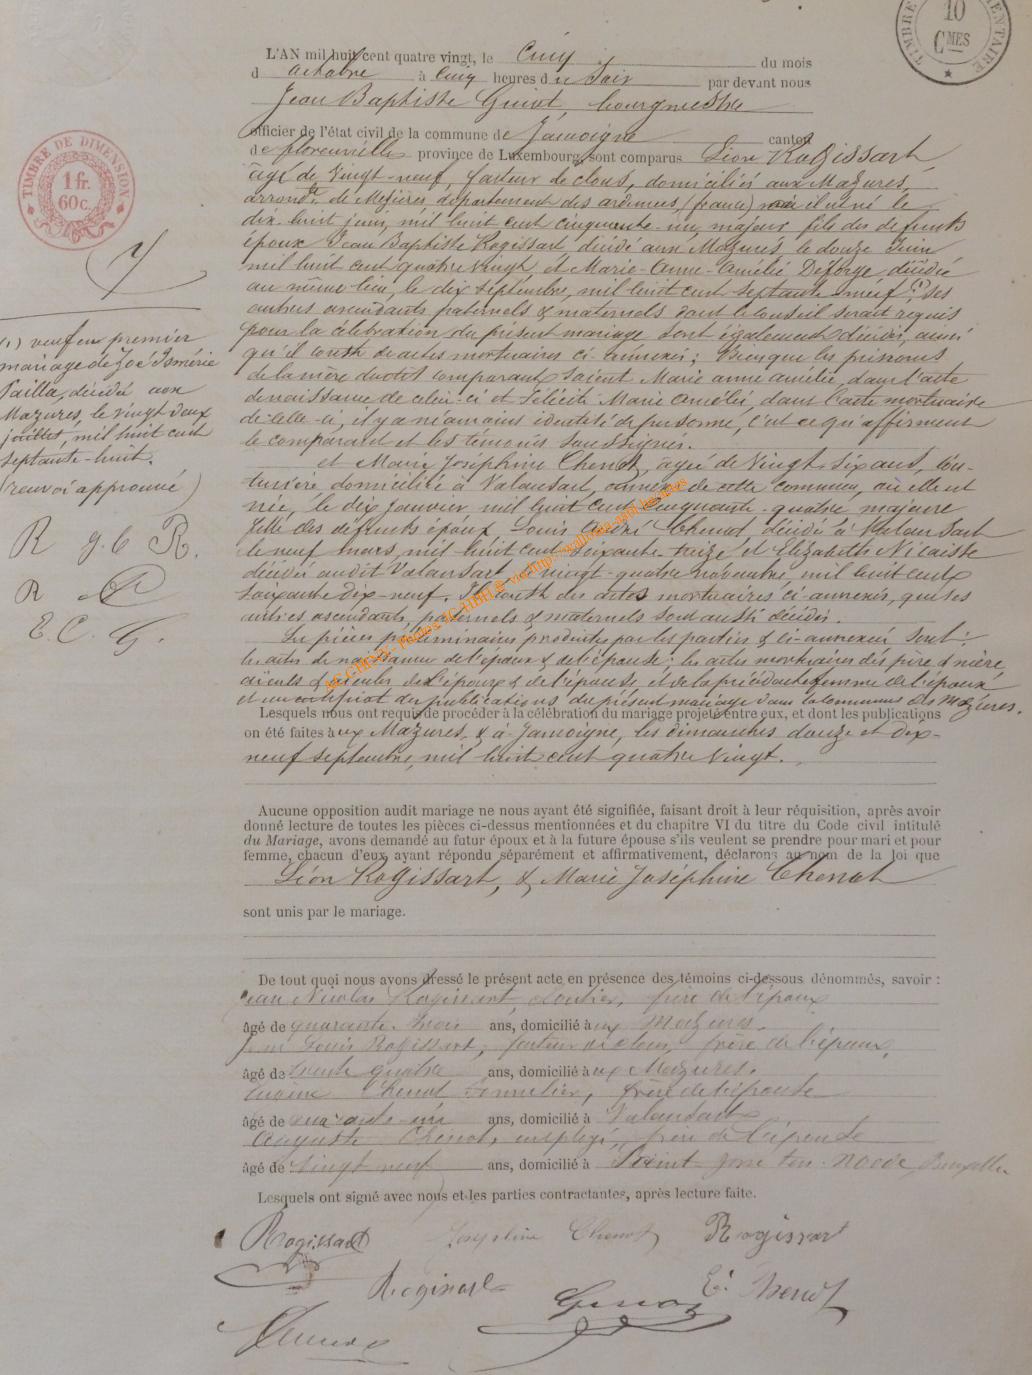 TIMBRE
10
CMES
L'AN mil huit cent quatre vingt, le Cinq du mois
d'octobre à Cinq heures du soir par devant nous
Jean Baptiste Guiot, bourgmestre
officier de l'état civil de la commune de Jamoigne canton
de florenville province de Luxembourg, sont comparus Léon Rogissart
âgé de vingt-neuf, facteur de clous, domicilié aux Mazures,
arrondt de Mézières département des ardennes, (france) où il est né le
dix huit juin, mil huit cent cinquante-un, majeur, fils des défunts
époux Jean Baptiste Rogissart décédé aux Mazures, le douze Juin
mil huit cent quatre vingt et Marie-Anne-Amélie Deforge décédée
au même lieu, le dix septembre, mil huit cent septante-neuf (1) ses
autres ascendants paternels & maternels dont le conseil serait requis
pour la célébration du présent mariage sont également décédés, ainsi
qu'il conste des actes mortuaires ci-annexés; Bien que les prénoms
de la mère dudit comparant soient Marie anne amélie, dans l'acte
de naissance de celui-ci et Félicité Marie Amélie, dans l'acte mortuaire
de celle-ci, il y a néanmoins identité de personne, c'est ce qu'affirment
le comparant et les témoins soussignés.
et Marie Joséphine Chenot, âgée de vingt-six ans, cou-
turière domiciliée à Valansart, annexe de cette commune, où elle est
née, le dix Janvier mil huit cent cinquante-quatre majeure
fille des défunts époux Louis André Chenot décédé à Valansart
le neuf mars, mil huit cent soixante-treize et Elizabeth Nicaise
décédée audit Valansart le vingt-quatre novembre, mil huit cent
soixante Dix-neuf. Il conste des actes mortuaires ci-annexés, que ses
autres ascendants, paternels & maternels sont aussi décédés.
Les pièces préliminaires produites par les parties & ci-annexées sont:
les actes de naissance de l'époux & de l'épouse; les actes mortuaires des père & mère
aïeuls & aïeules de l'époux & de l'épouse et de la précédente femme de l'époux
et un certificat des publications du présent mariage dans la commune des Mazures.
Lesquels nous ont requis de procéder à la célébration du mariage projeté entre eux, et dont les publications
on été faites aux Mazures, & à Jamoigne, les dimanches douze et dix-
neuf septembre, mil huit cent quatre vingt.
Aucune opposition audit mariage ne nous ayant été signifiée, faisant droit à leur réquisition, après avoir
donné lecture de toutes les pièces ci-dessus mentionnées et du chapitre VI du titre du Code civil intitulé
du Mariage, avons demandé au futur époux et à la future épouse s'ils veulent se prendre pour mari et pour
femme, chacun d'eux ayant répondu séparément et affirmativement, déclarons au nom de la loi que
Léon Rogissart, & Marie Joséphine Chenot
sont unis par le mariage.
De tout quoi nous avons dressé le présent acte en présence des témoins ci-dessous dénommés, savoir :
Jean Nicolas Rogissart, cloutier, frère de l'époux
âgé de quarante-trois ans, domicilié aux Mazures.
Jean Louis Rogissart, facteur de clous, frère de l'époux,
âgé de trente quatre ans, domicilié aux Mazures.
Chenot, frère de l'épouse
âgé de quarante-un ans, domicilié à Valansart
Auguste Chenot, employé, frère de l'épouse
âgé de vingt neuf ans, domicilié à Saint Josse ten-Noode, Bruxelles
Lesquels ont signé avec nous et les parties contractantes, après lecture faite.
Rogissart Joséphine Chenot Rogissart
Rogissart E. Chenot
TIMBRE DE DIMENSION
1 fr.
60c.
(1) veuf en premier
mariage de Zoé Ismérie
Tailla, décédée aux
Mazures, le vingt deux
juillet, mil huit cent
septante-huit.
(renvoi approuvé)
R g.b R.
R
E. C. G.